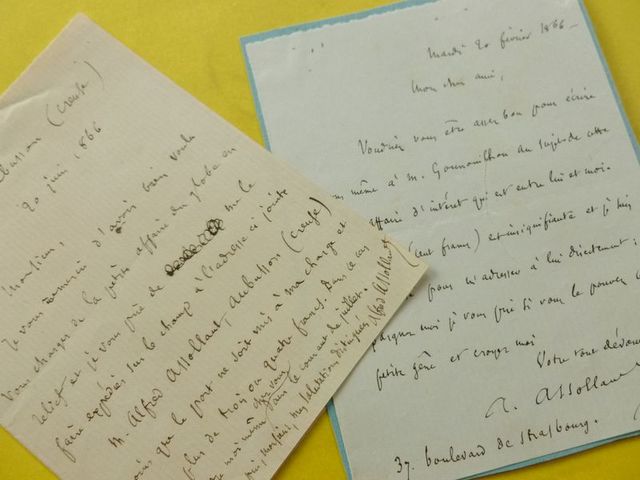 Aubusson (Creuse)
20 juin 1866
Monsieur,
Je vous remercie d'avoir bien voulu
vous charger de la petite affaire du globe en
relief et je vous prie de me le
faire expédier sur le champ à l'adresse ci jointe
M. Alfred Assollant, Aubusson (Creuse)
moins que le port ne soit mis à ma charge et
plus de trois ou quatre francs. Dans ce cas
chez vous
moi même dans le courant de juillet.
Monsieur, mes salutations distinguées
Alfred Assollant
Mardi 20 février 1866
Mon cher ami,
Voudriez vous être assez bon pour écrire
vous même à M. Gounouilhou au sujet de cette
affaire d'intérêt qui est entre lui et moi.
(cent francs) est insignifiante et je suis
pour m'adresser à lui directement :
épargnez moi je vous prie si vous le pouvez cette
petite gêne et croyez moi
Votre tout dévoué
A. Assollant
37. boulevard de Strasbourg.